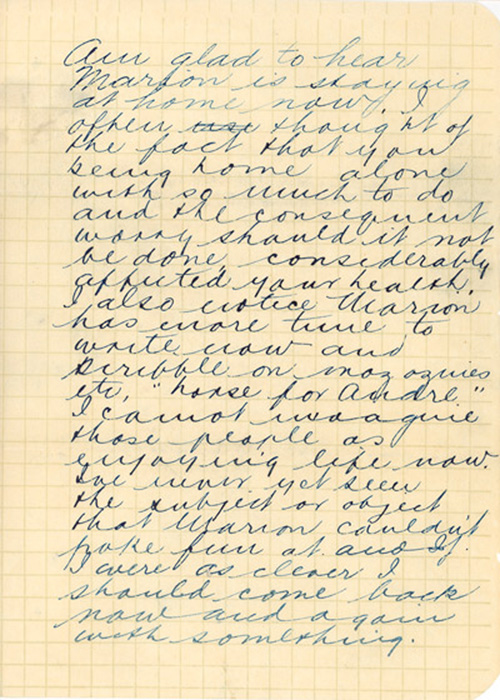 Am glad to hear
Marion is staying
at home now, I
often use thought of
the fact that you
being home alone
with so much to do
and the consequent
worry should it not
be done, considerably
affected your health.
I also notice Marion
has more time to
write now and
scribble on magaznies
etc, "horse for Andre."
I cannot imagine
those people as
enjoying life now.
I've never yet seen
the subject or object
that Marion couldn't
poke fun at and if
I were as clever I
should come back
now and again
with something.